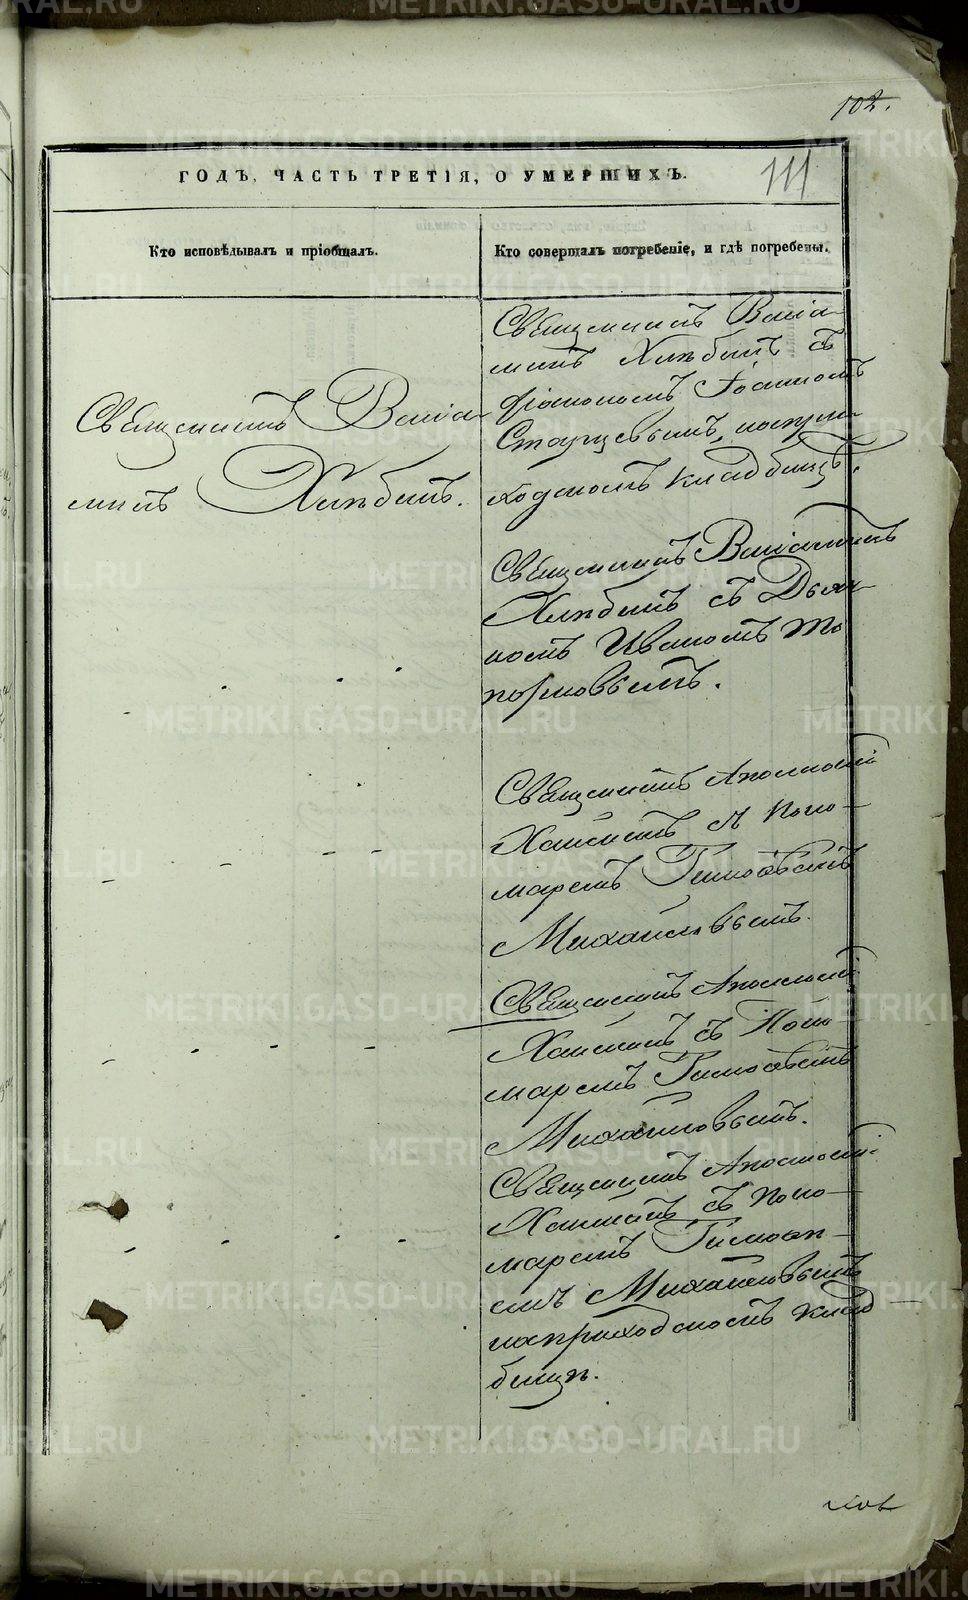 102.
111
ГОДЪ, ЧАСТЬ ТРЕТІЯ, О УМЕРШИХЪ.
Кто исповѣдывалъ и пріобщалъ.
Кто совершалъ погребеніе, и гдѣ погребены.
Священникъ Веніа
минъ Хлѣбинъ.
Священникъ Веніа
минъ Хлѣбинъ съ
діакономъ Іоанномъ
Старцевымъ, на при
ходскомъ кладбищѣ.
Священникъ Веніаминъ
Хлѣбинъ съ Дьяч
комъ Иваномъ То
порковымъ.
Священникъ Аполлоній
съ Поно
маремъ Тимоѳѣемъ
Михайловымъ.
Священникъ Аполлоній
съ Поно
маремъ Тимоѳѣемъ
Михайловымъ.
Священникъ Аполлоній
съ Поно
маремъ Тимоѳѣ
емъ Михайловымъ
на приходскомъ клад
бищѣ.
METRIKI.GASO-URAL.RU